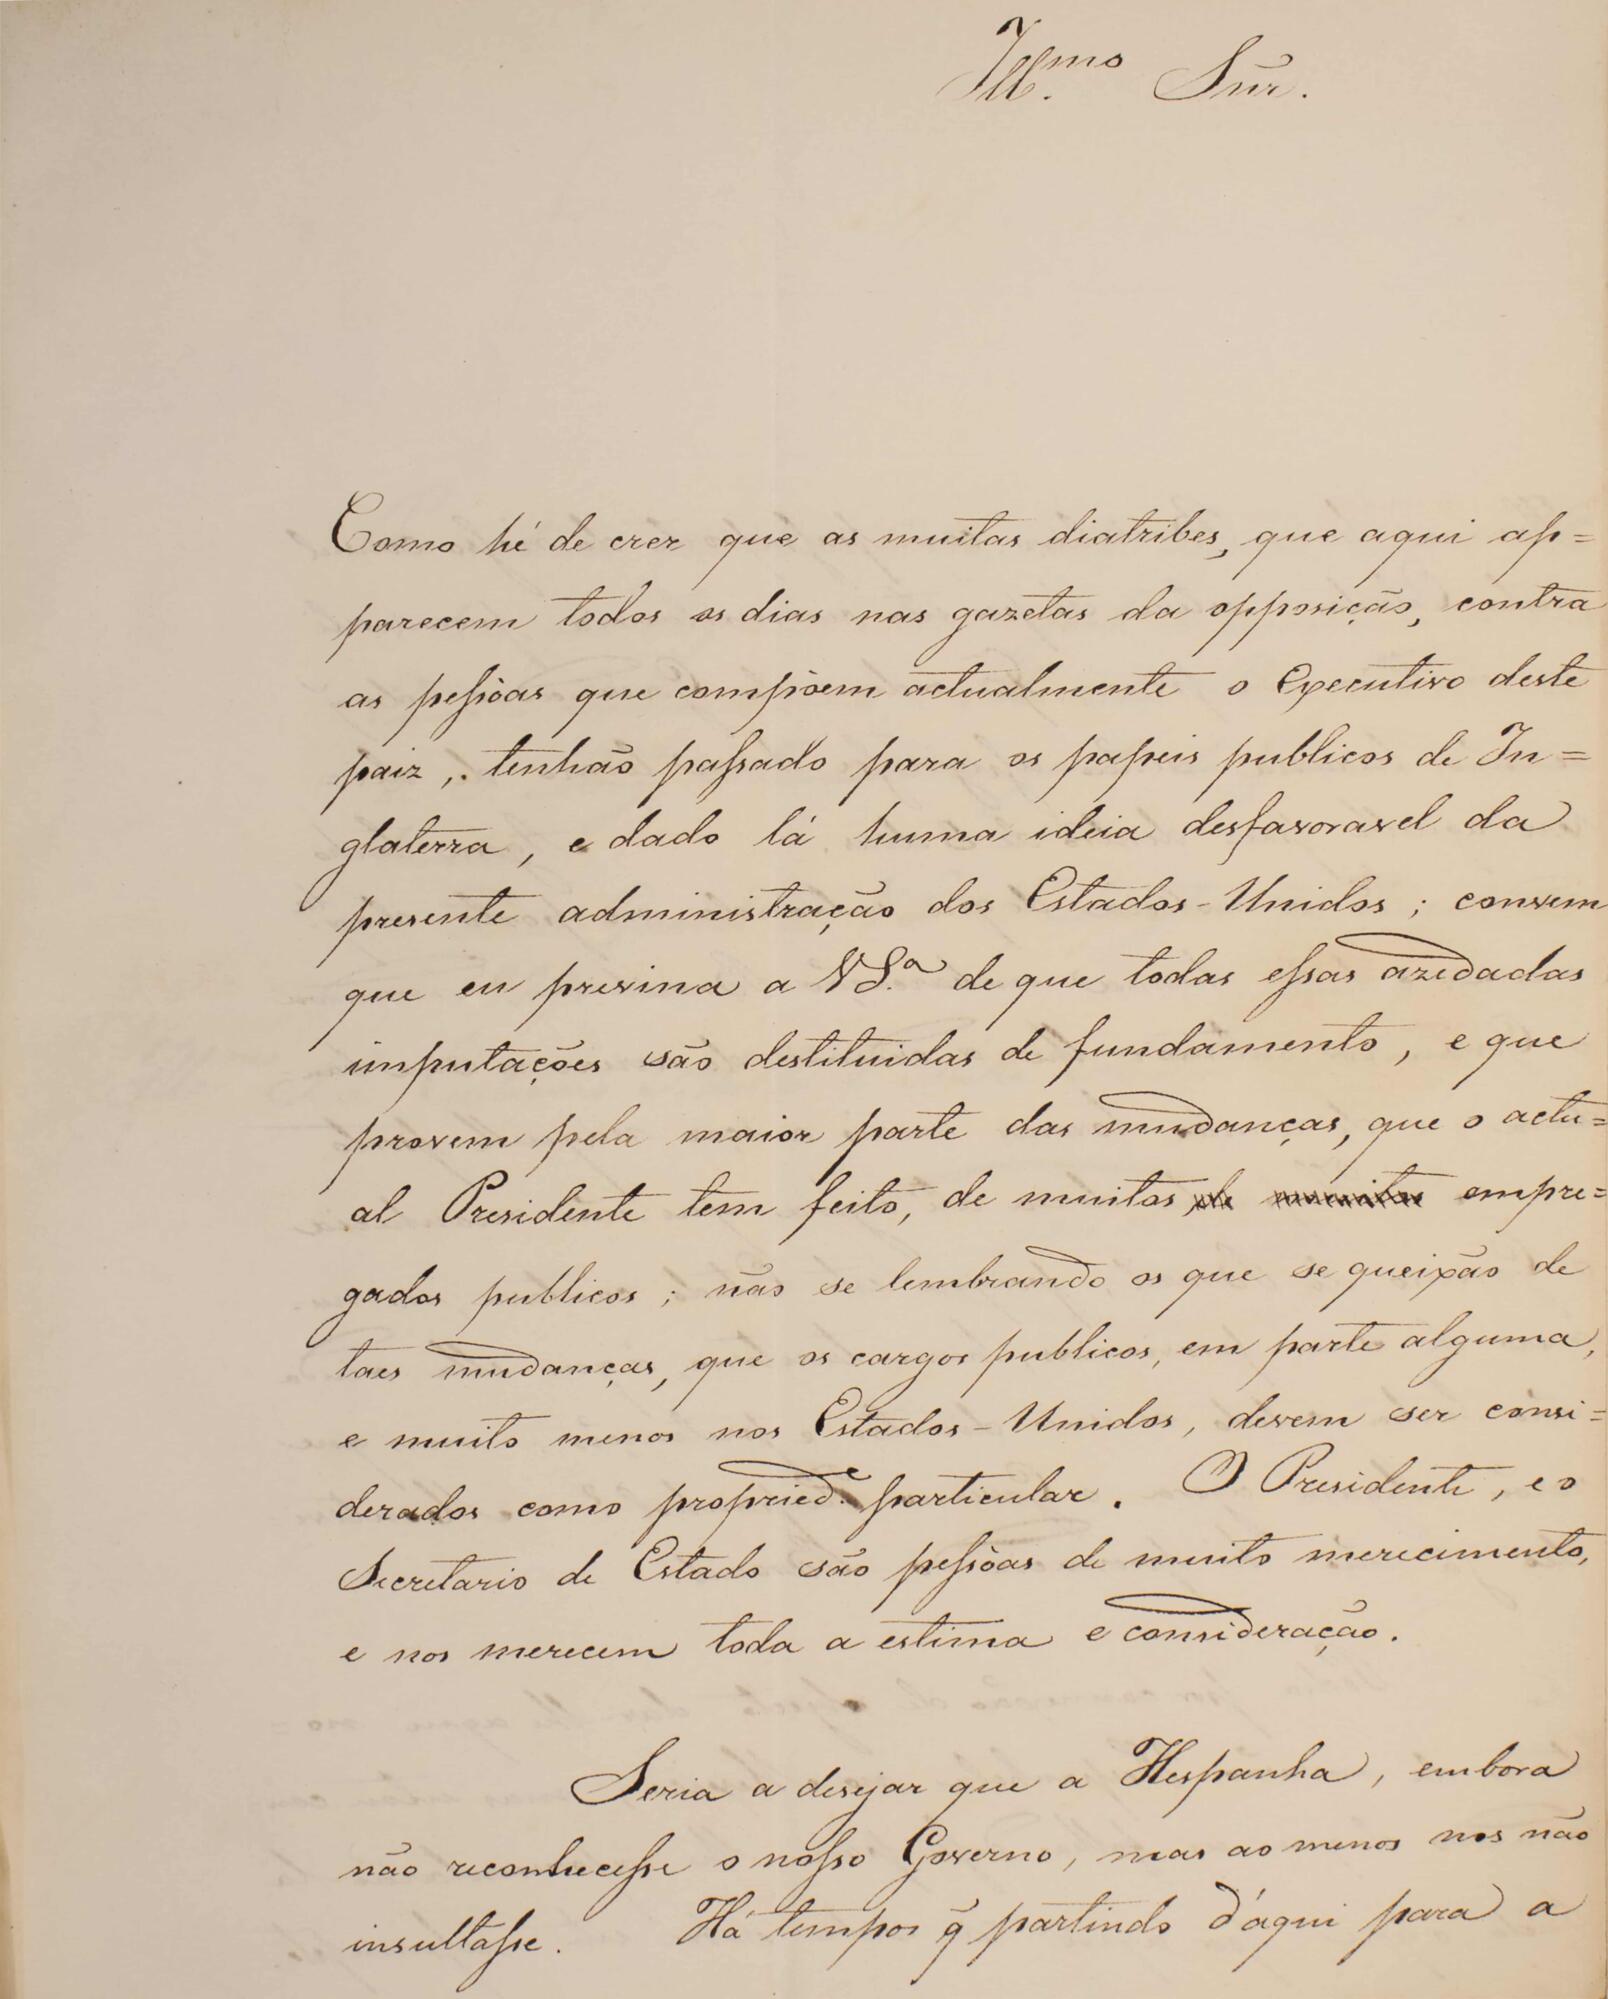 Ill.mo Snr.
Como hé de crer que as muitas diatribes, que aqui ap=
parecem todos os dias nas gazetas da opposição, contra
as pessôas que compõem actualmente o Executivo deste
paiz, tenhão passado para os papeis publicos de In=
glaterra, e dado lá huma ideia desfavoravel da
presente administração dos Estados-Unidos; convem
que eu previna a VS.a de que todas essas azedadas
imputações são destituidas de fundamento, e que
provem pela maior parte das mudanças, que o actu=
al Presidente tem feito, de muitos de muitos empre=
gados publicos; não se lembrando os que se queixão de
taes mudanças, que os cargos publicos, em parte alguma,
e muito menos nos Estados-Unidos, devem ser consi=
derados como propried.e particular. O Presidente, e o
Secretario de Estado são pessôas de muito merecimento,
e nos merecem toda a estima e consideração.
Seria a desejar que a Hespanha, embora
não reconhecesse o nosso Governo, mas ao menos nos não
insultasse. Há tempos q̃ partindo d'aqui para a